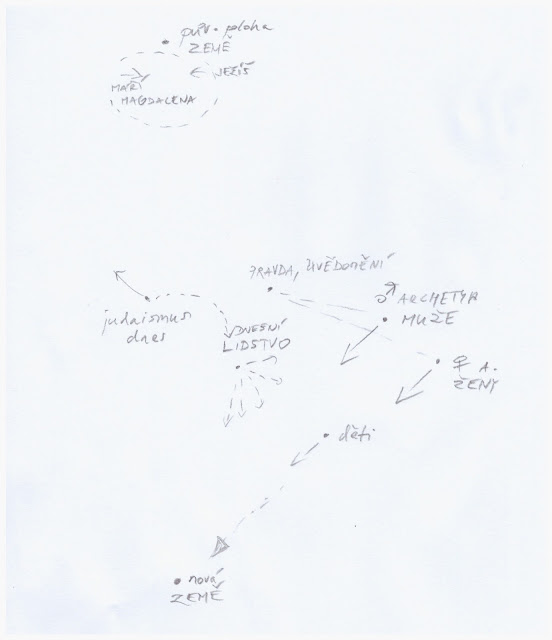 pův. ploha
ZEMĚ
JEŽÍŠ
MAŘÍ
MAGDALENA
PRAVDA, UVĚDOMĚNÍ
♂ ARCHETYP
MUŽE
judaismus
dnes
DNEŠNÍ
LIDSTVO
♀ A.
ŽENY
děti
nová
ZEMĚ